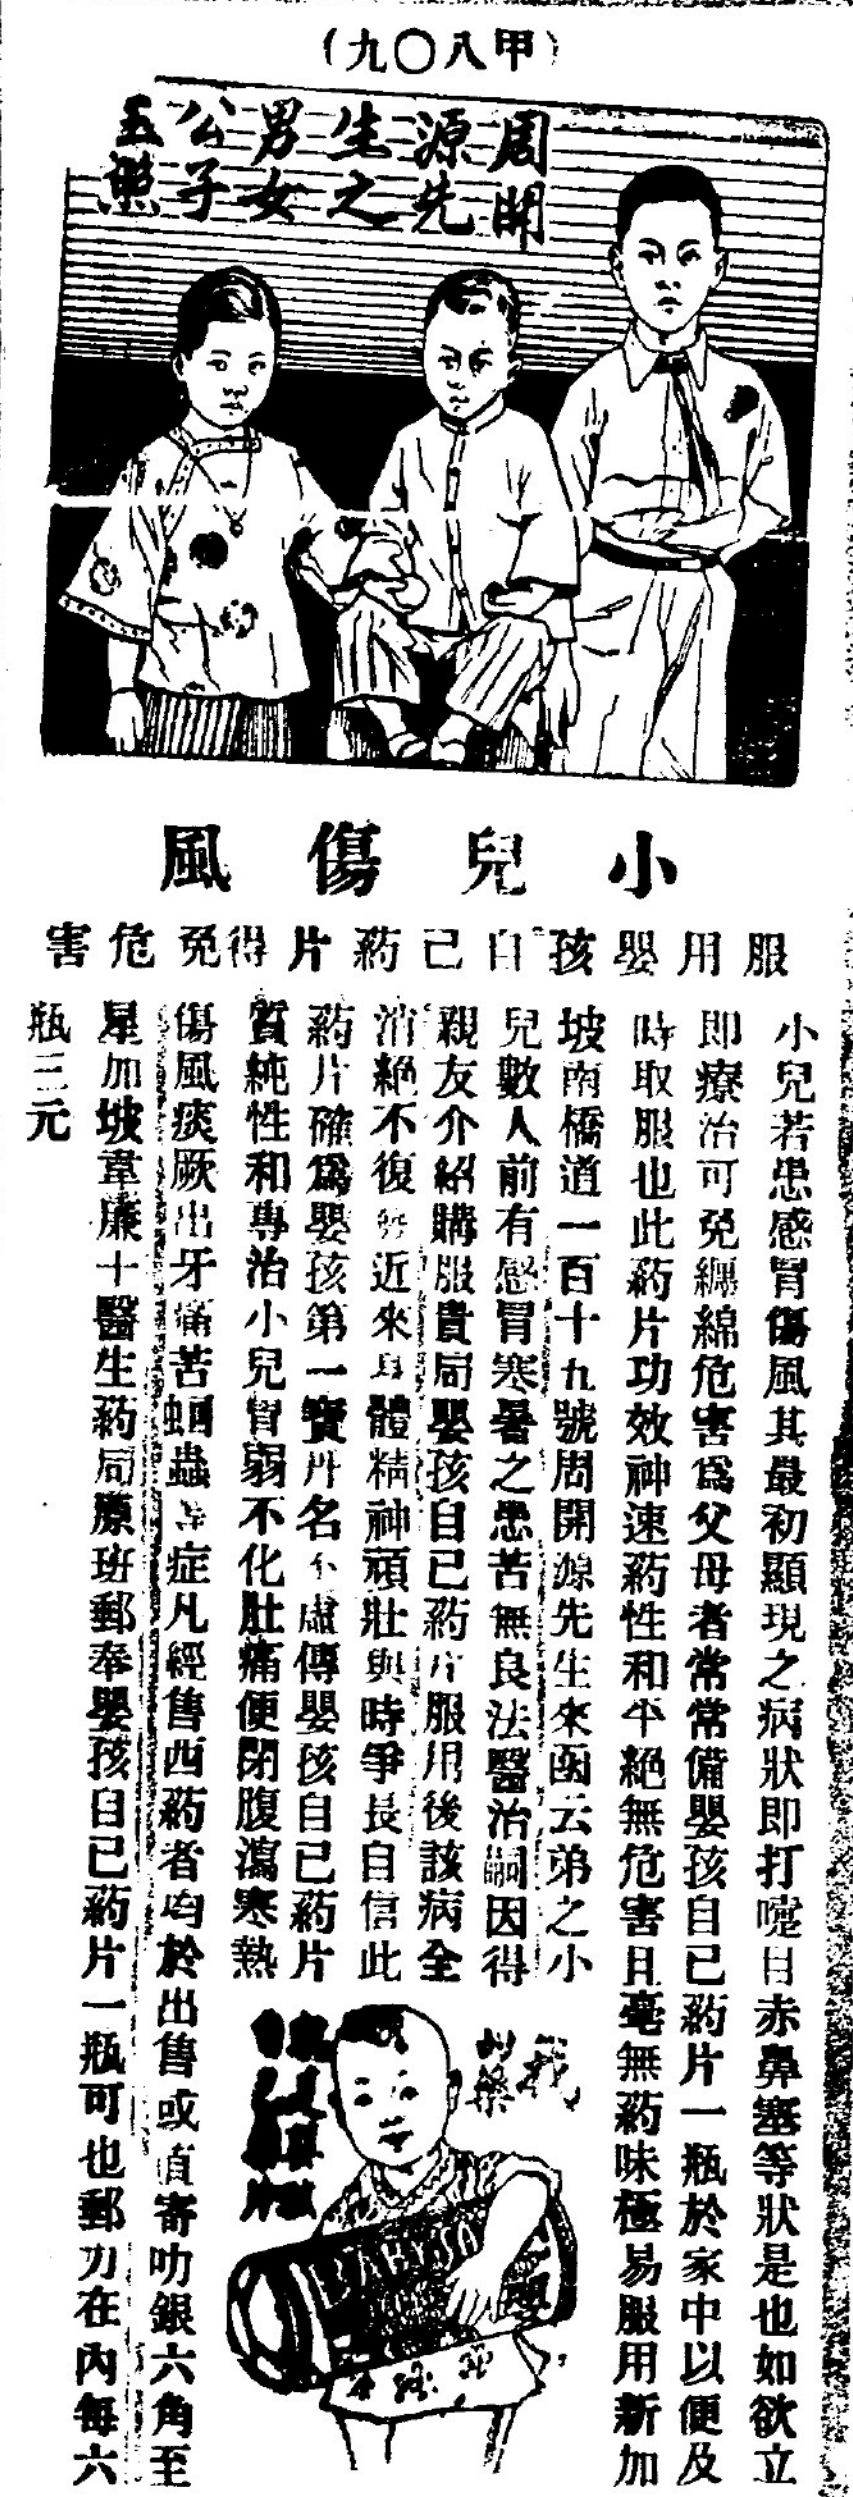 (甲八〇九)
周開
源先
生之
男女
公子
玉照
小兒傷風
服用嬰孩自己葯片得免危害
小兒若患感冒傷風其最初顯現之病狀即打嚏目赤鼻塞等狀是也如欲立
即療治可免纏綿危害爲父母者常常備嬰孩自己葯片一瓶於家中以便及
時取服也此葯片功效神速葯性和平絕無危害且毫無葯味極易服用新加
坡南橋道一百十九號周開源先生來函云弟之小
兒數人前有感冒寒暑之患苦無良法醫治嗣因得
親友介紹購服貴局嬰孩自己葯片服用後該病全
消絕不復發近來身體精神頑壯與時爭長自信此
葯片確爲嬰孩第一寶丹名不虛傳嬰孩自己葯片
質純性和專治小兒胃弱不化肚痛便閉腹瀉寒熱
傷風痰厥出牙痛苦蛔蟲等症凡經售西葯者均於出售或直寄叻銀六角至
星加坡韋廉士醫生葯局原班郵奉嬰孩自己葯片一瓶可也郵力在內每六
瓶三元
我
BABY'S O